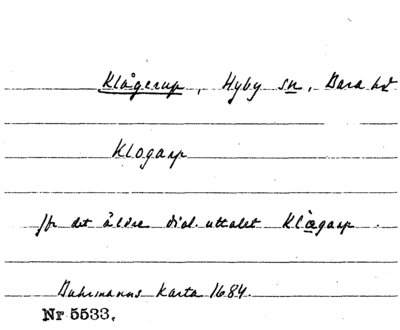 Klågerup, Hyby sn, Bara hd
Klogarp
Jfr det äldre dial. uttalet Klågarp.
Buhrmanns karta 1684.
Nr 5533.